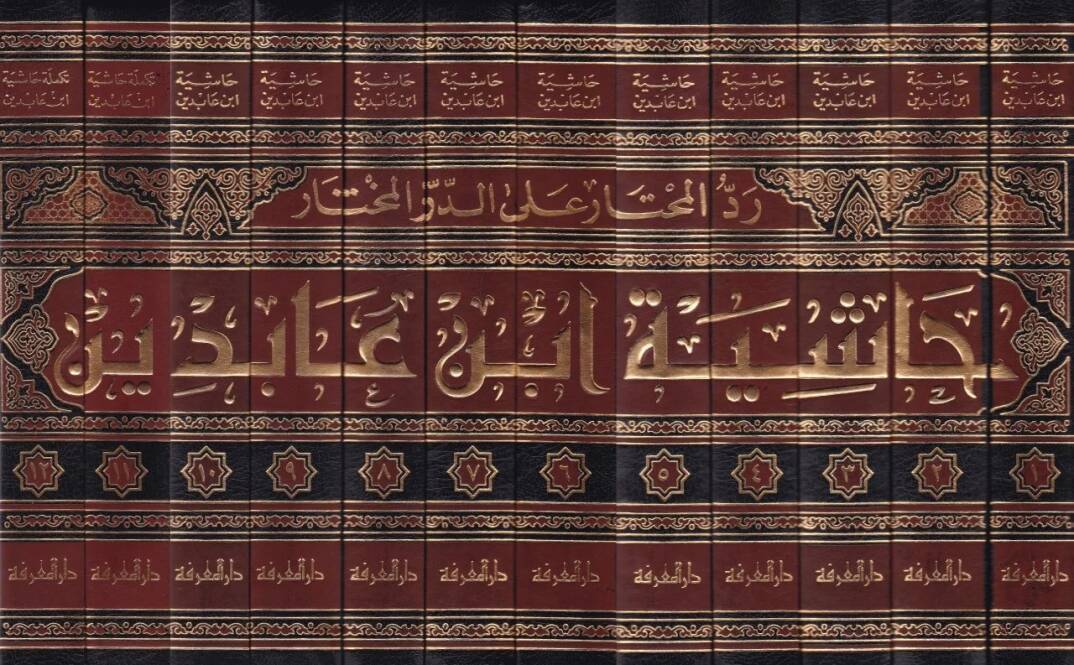 حاشية ابن عابدين
حاشية ابن عابدين
حاشية ابن عابدين
حاشية ابن عابدين
حاشية ابن عابدين
حاشية ابن عابدين
حاشية ابن عابدين
حاشية ابن عابدين
حاشية ابن عابدين
حاشية ابن عابدين
تكملة حاشية ابن عابدين
تكملة حاشية ابن عابدين
رَدُّ المحْتَار عَلى الدُّرِّ المخْتَار
حَاشِيَة ابْن عَابِدِين
١ ٢ ٣ ٤ ٥ ٦ ٧ ٨ ٩ ١٠ ١١ ١٢
دار المعرفة دار المعرفة دار المعرفة دار المعرفة دار المعرفة دار المعرفة دار المعرفة دار المعرفة دار المعرفة دار المعرفة دار المعرفة دار المعرفة